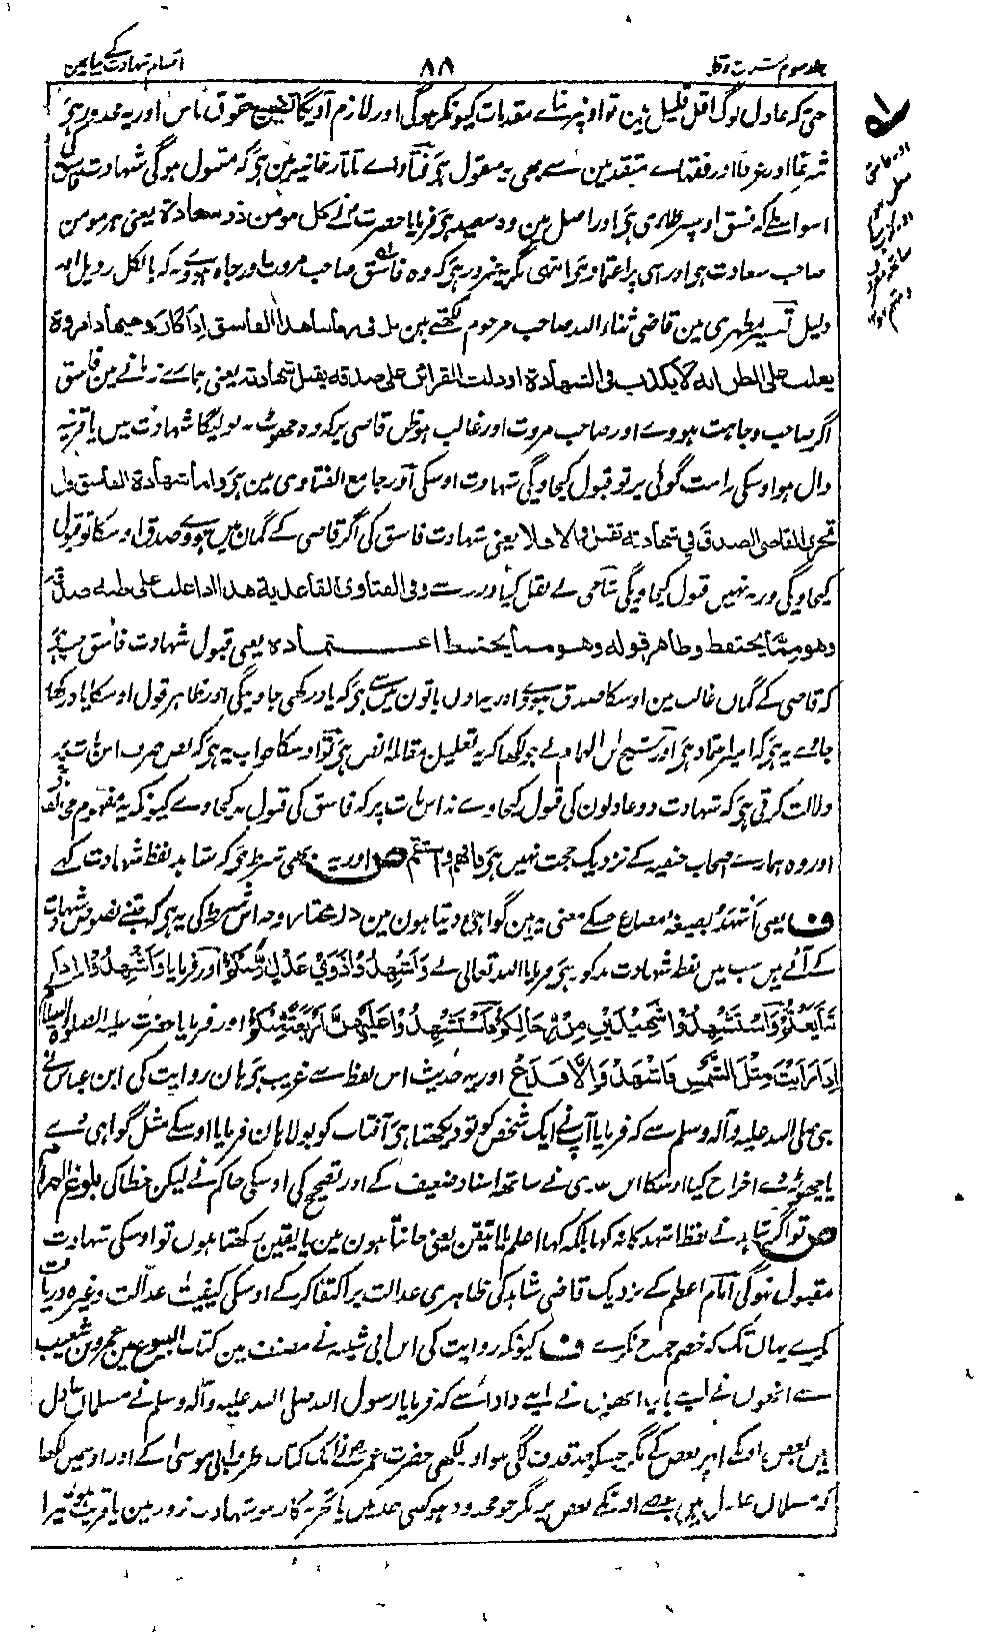 جلد سوم شرح وقایہ ۸۸ اقسام شہادت کے بیان میں
حتی کہ عادل لوگ اقل قلیل ہین تو اونپر بناے مقدمات کیونکر ہوگی اور لازم آویگا تضییع حقوق ناس اور یہ محذور ہی
شرعا اور عرفا اور فقہاے متقدمین سے بھی یہ منقول ہی فتاواے تاتارخانیہ مین ہی کہ مقبول ہوگی شہادت فاسق کی
اسواسطے کہ فسق اوسپر طاری ہی اور اصل مین وہ سعید ہی فرمایا حضرت نے کل مومن ذو سعادة یعنی ہر مومن
صاحب سعادت ہی اور اسی پر اعتماد ہی انتہی مگر یہ ضرور ہی کہ وہ فاسق صاحب مروت اور جاہ ہووے نہ کہ بالکل رذیل اور
ذلیل تفسیر مظہری مین قاضی ثناء اللہ صاحب مرحوم لکھتے ہین بل فی زماننا هذا الفاسق إذا كان وجيها ذا مروة
يغلب على الظن انه لا يكذب فى الشهادة او دلت القرائن على صدقه يقبل شهادته یعنی ہمارے زمانے مین فاسق
اگر صاحب وجاہت ہووے اور صاحب مروت اور غالب ہو ظن قاضی پر کہ وہ جھوٹ نہ بولیگا شہادت میں یا قرینہ
دال ہو اوسکی راست گوئی پر تو قبول کیجاویگی شہادت اوسکی اور جامع الفتاوی مین ہی واما شهادة الفاسق فان
تحرى القاضى الصدق فى شهادته تقبل والا فلا یعنی شہادت فاسق کی اگر قاضی کے گمان میں ہووے صدق اوسکا تو قبول
کیجاویگی ورنہ نہیں قبول کیجاویگی شامی نے نقل کیا درر سے وفى الفتاوى القاعدية هذا اذا غلب على ظنه صدقه
وهو مما يحتفظ وظاهر قوله وهو مما يحتفظ اعتماده یعنی قبول شہادت فاسق یہ ہی
کہ قاضی کے گمان غالب مین اوسکا صدق ہووے اور یہ اون باتون میں سے ہی کہ یاد رکھی جاویگی اور ظاہر قول اوسکا یاد رکھا
جاے یہ ہی کہ اسپر اعتماد ہی اور شیخ ابن الہمام نے جو لکھا کہ یہ تعلیل مقابلہ نص ہی تو اوسکا جواب یہ ہی کہ نص صرف اس بات پر
دلالت کرتی ہی کہ شہادت دو عادلون کی قبول کیجاوے نہ اس بات پر کہ فاسق کی قبول نہ کیجاوے کیونکہ یہ مفہوم مخالف ہی
اور وہ ہمارے اصحاب حنفیہ کے نزدیک حجت نہیں ہی فافہم واستقم ص اور یہ بھی شرط ہی کہ شاہد بلفظ شہادت کہے
ف یعنی أشهد بصیغہ مضارع جسکے معنی یہ ہین گواہی دیتا ہون مین وجہ اس شرط کی یہ ہی کہ جتنے نصوص شہادت
کے آئے ہیں سب میں لفظ شہادت مذکور ہی فرمایا اللہ تعالی نے وَأَشْهِدُوا ذَوَيْ عَدْلٍ مِّنكُمْ اور فرمایا وَأَشْهِدُوا إِذَا
تَبَايَعْتُمْ وَاسْتَشْهِدُوا شَهِيدَيْنِ مِن رِّجَالِكُمْ فَاسْتَشْهِدُوا عَلَيْهِنَّ أَرْبَعَةً مِّنكُمْ اور فرمایا حضرت علیہ الصلوة والسلام نے
إِذَا رَأَيْتَ مِثْلَ الشَّمْسِ فَاشْهَدْ وَإِلَّا فَدَعْ اور یہ حدیث اس لفظ سے غریب ہی ہان روایت کی ابن عباس نے
نبی صلی اللہ علیہ وآلہ وسلم سے کہ فرمایا آپ نے ایک شخص کو تو دیکھتا ہی آفتاب کو بولا ہان فرمایا اوسکے مثل گواہی دے
یا چھوڑ دے اخراج کیا اوسکا ابن عدی نے ساتھ اسناد ضعیف کے اور تصحیح کی اوسکی حاکم نے لیکن خطا کی بلوغ المرام
ص تو اگر شاہد نے لفظ اشہد کا نہ کہا بلکہ کہا اعلم یا اتیقن یعنی جانتا ہون مین یا یقین رکھتا ہوں تو اوسکی شہادت
مقبول نہوگی امام اعظم کے نزدیک قاضی شاہد کی ظاہری عدالت پر اکتفا کرکے اوسکی کیفیت عدالت وغیرہ دریافت
نکرے یہاں تک کہ خصم جرح نکرے ف کیونکہ روایت کی ابن ابی شیبہ نے مصنف مین کتاب البیوع مین عمرو بن شعیب
سے انھوں نے اپنے باپ انھوں نے اپنے دادا سے کہ فرمایا رسول اللہ صلی اللہ علیہ وآلہ وسلم نے مسلمان عادل
ہیں بعض اونکے اوپر بعض کے مگر جسکو حد قذف لگی ہو اور لکھی حضرت عمر نے ایک کتاب طرف ابی موسیٰ کے اور اوسمیں لکھا
کہ مسلمان عادل ہیں بعضے اونکے بعض پر مگر جو محدود ہو کسی حد میں یا تجربہ کار ہو شہادت زور مین یا قریب ہو تیرا